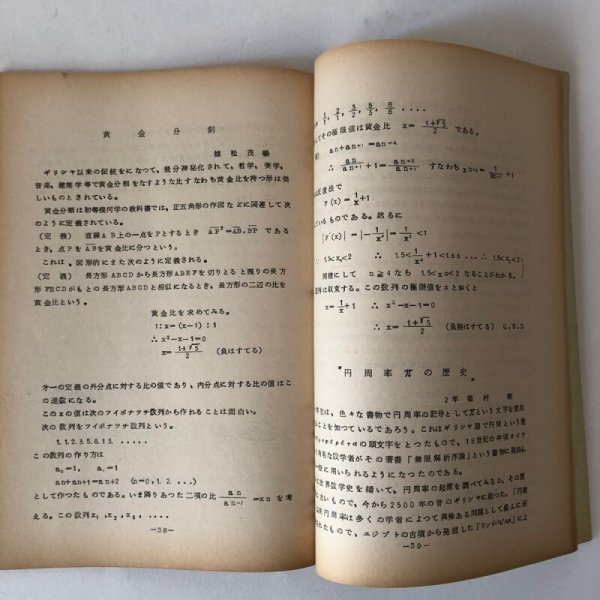 黄金分割
植松茂暢
ギリシヤ以来の伝統をになつて、幾分神秘化されて、哲学、美学、
音楽、建築学等で黄金分割をなすような比すなわち黄金比を持つ形は美
しいものとされている。
黄金分割は初等幾何学の教科書では、正五角形の作図などに関連して次
のように定義されている。
(定義) 直線AB上の一点をPとするとき AP²=AB・BP であると
とき、点PをABを黄金比に分つという。
これは、図形的にまた次のように定義される。
(定義) 長方形ABCDから長方形ABEFを切りとると残りの長方
形FECDがもとの長方形ABCDと相似になるとき、長方形の二辺の比を
黄金比という。
黄金比を求めてみる。
1:x=(x-1):1
∴ x²-x-1=0
x=(1+√5)/2 (負はすてる)
才一の定義の外分点に対する比の値であり、内分点に対する比の値はこ
の逆数になる。
このxの値は次のフイボナツチ数列から作れることは面白い。
次の数列をフイボナツチ数列という。
1, 1, 2, 3, 5, 8, 13, .....
この数列の作り方は
a₀=1, a₁=1
an+an+1=an+2 (n=0, 1, 2 ....)
として作つたものである。いま隣りあつた二項の比 an/an-1 =xn を考
える。この数列 x₁, x₂, x₃, ....
-38-
1/1, 2/1, 3/2, 5/3, 8/5 ....
その極限値は黄金比 x=(1+√5)/2 である。
an+an+1=an+2
∴ an/an+1+1=an+2/an+1 すなわち xn+2=1/xn+1+1
反復法で
F(x)=1/x+1
ているものである。然るに
|F'(x)|=|-1/x²|=1/x²<1
同様にして n≧4 なら 1.5<xn<2 なることがわかる。
は収束する。この数列の極限値をxとおくと
x=1/x+1 ∴ x²-x-1=0
∴ x=(1+√5)/2 (負根はすてる) Q.E.D
"円周率πの歴史"
2年 植村
学生は、色々な書物で円周率の記号としてπという文字を使用
つているであろう。これはギリシヤ語で円周という意
の頭文字をとつたもので、18世紀の中頃オイラ
有名な数学者がその著書「無限解析序論」という書物に発表し
一般に用いられるようになつたのである。
世界数学史を繙いて、円周率の起源を調べてみると、その歴
古いもので、今から2500年の昔のギリシヤに起つた「円積
円周率は多くの学者によつて興味ある問題として盛んに研
れたもので、エジプトの古墳から発掘した「リンドパピルス」によ
-39-